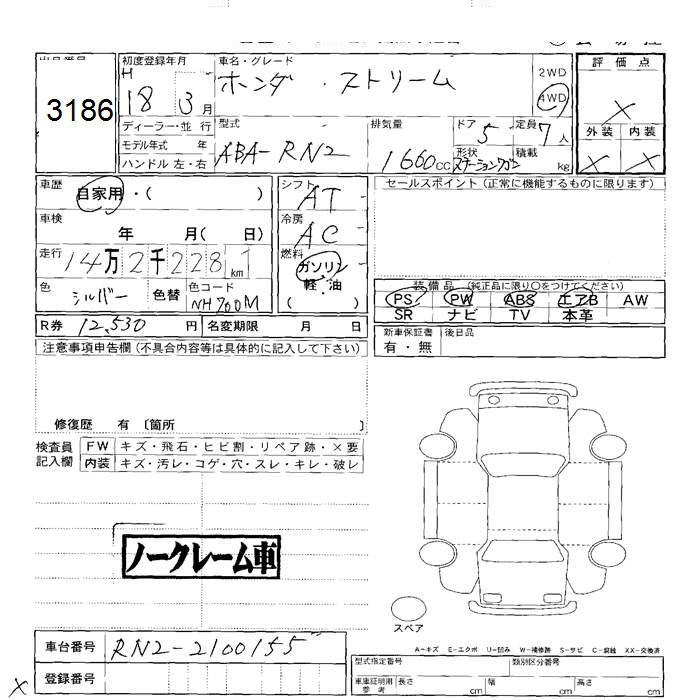 初度登録年月 車名・グレード 評価点
3186 H 18 3月 ホンダ ・ストリーム 2WD 4WD ×
ディーラー・並行 型式 排気量 ドア 定員 外装 内装
モデル年式 年 ABA-RN2 1660cc 5 7人 × ×
ハンドル 左・右 形状 ステーションワゴン 積載 kg
車歴 自家用・( ) シフト AT セールスポイント(正常に機能するものに限ります)
車検 年 月( 日) 冷房 AC
走行 14万2千228km 燃料 ガソリン
色 シルバー 色替 色コード NH700M 軽・油 ( )
装備品(純正品に限り〇をつけてください)
PS PW ABS エアB AW
SR ナビ TV 本革
R券 12,530円 名変期限 月 日 新車保証書 後日品
有・無
注意事項申告欄(不具合内容等は具体的に記入して下さい)
修復歴 有 〔箇所
検査員 FW キズ・飛石・ヒビ割・リペア跡・×要
記入欄 内装 キズ・汚レ・コゲ・穴・スレ・キレ・破レ
ノークレーム車
スペア
A-キズ E-エクボ U-凹み W-補修跡 S-サビ C-腐蝕 XX-交換済
車台番号 RN2-2100155
型式指定番号 類別区分番号
× 登録番号
車庫証明用 参考 長さ cm 幅 cm 高さ cm